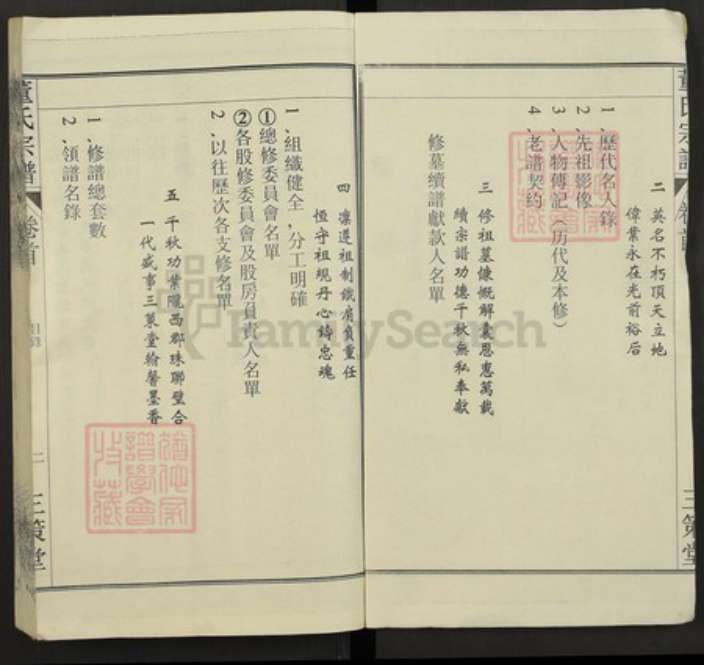 董氏宗譜
卷首
三策堂
二 英名不朽頂天立地
偉業永在光前裕后
1、歷代名人錄
2、先祖影像
3、人物傳記（历代及本修）
4、老譜契約
三 修祖墓慷慨解囊恩惠萬載
續宗譜功德千秋無私奉獻
修墓續譜獻款人名單
四 凜遵祖制鐵肩負重任
恆守祖規丹心鑄忠魂
1、組織健全，分工明確
①總修委員會名單
②各股修委員會及股房負責人名單
2、以往歷次各支修名單
五 千秋功業隴西郡珠聯璧合
一代盛事三策堂翰馨墨香
1、修譜總套數
2、領譜名錄
董氏宗譜
卷首
目錄
二
三策堂
FamilySearch
譜學會
特藏